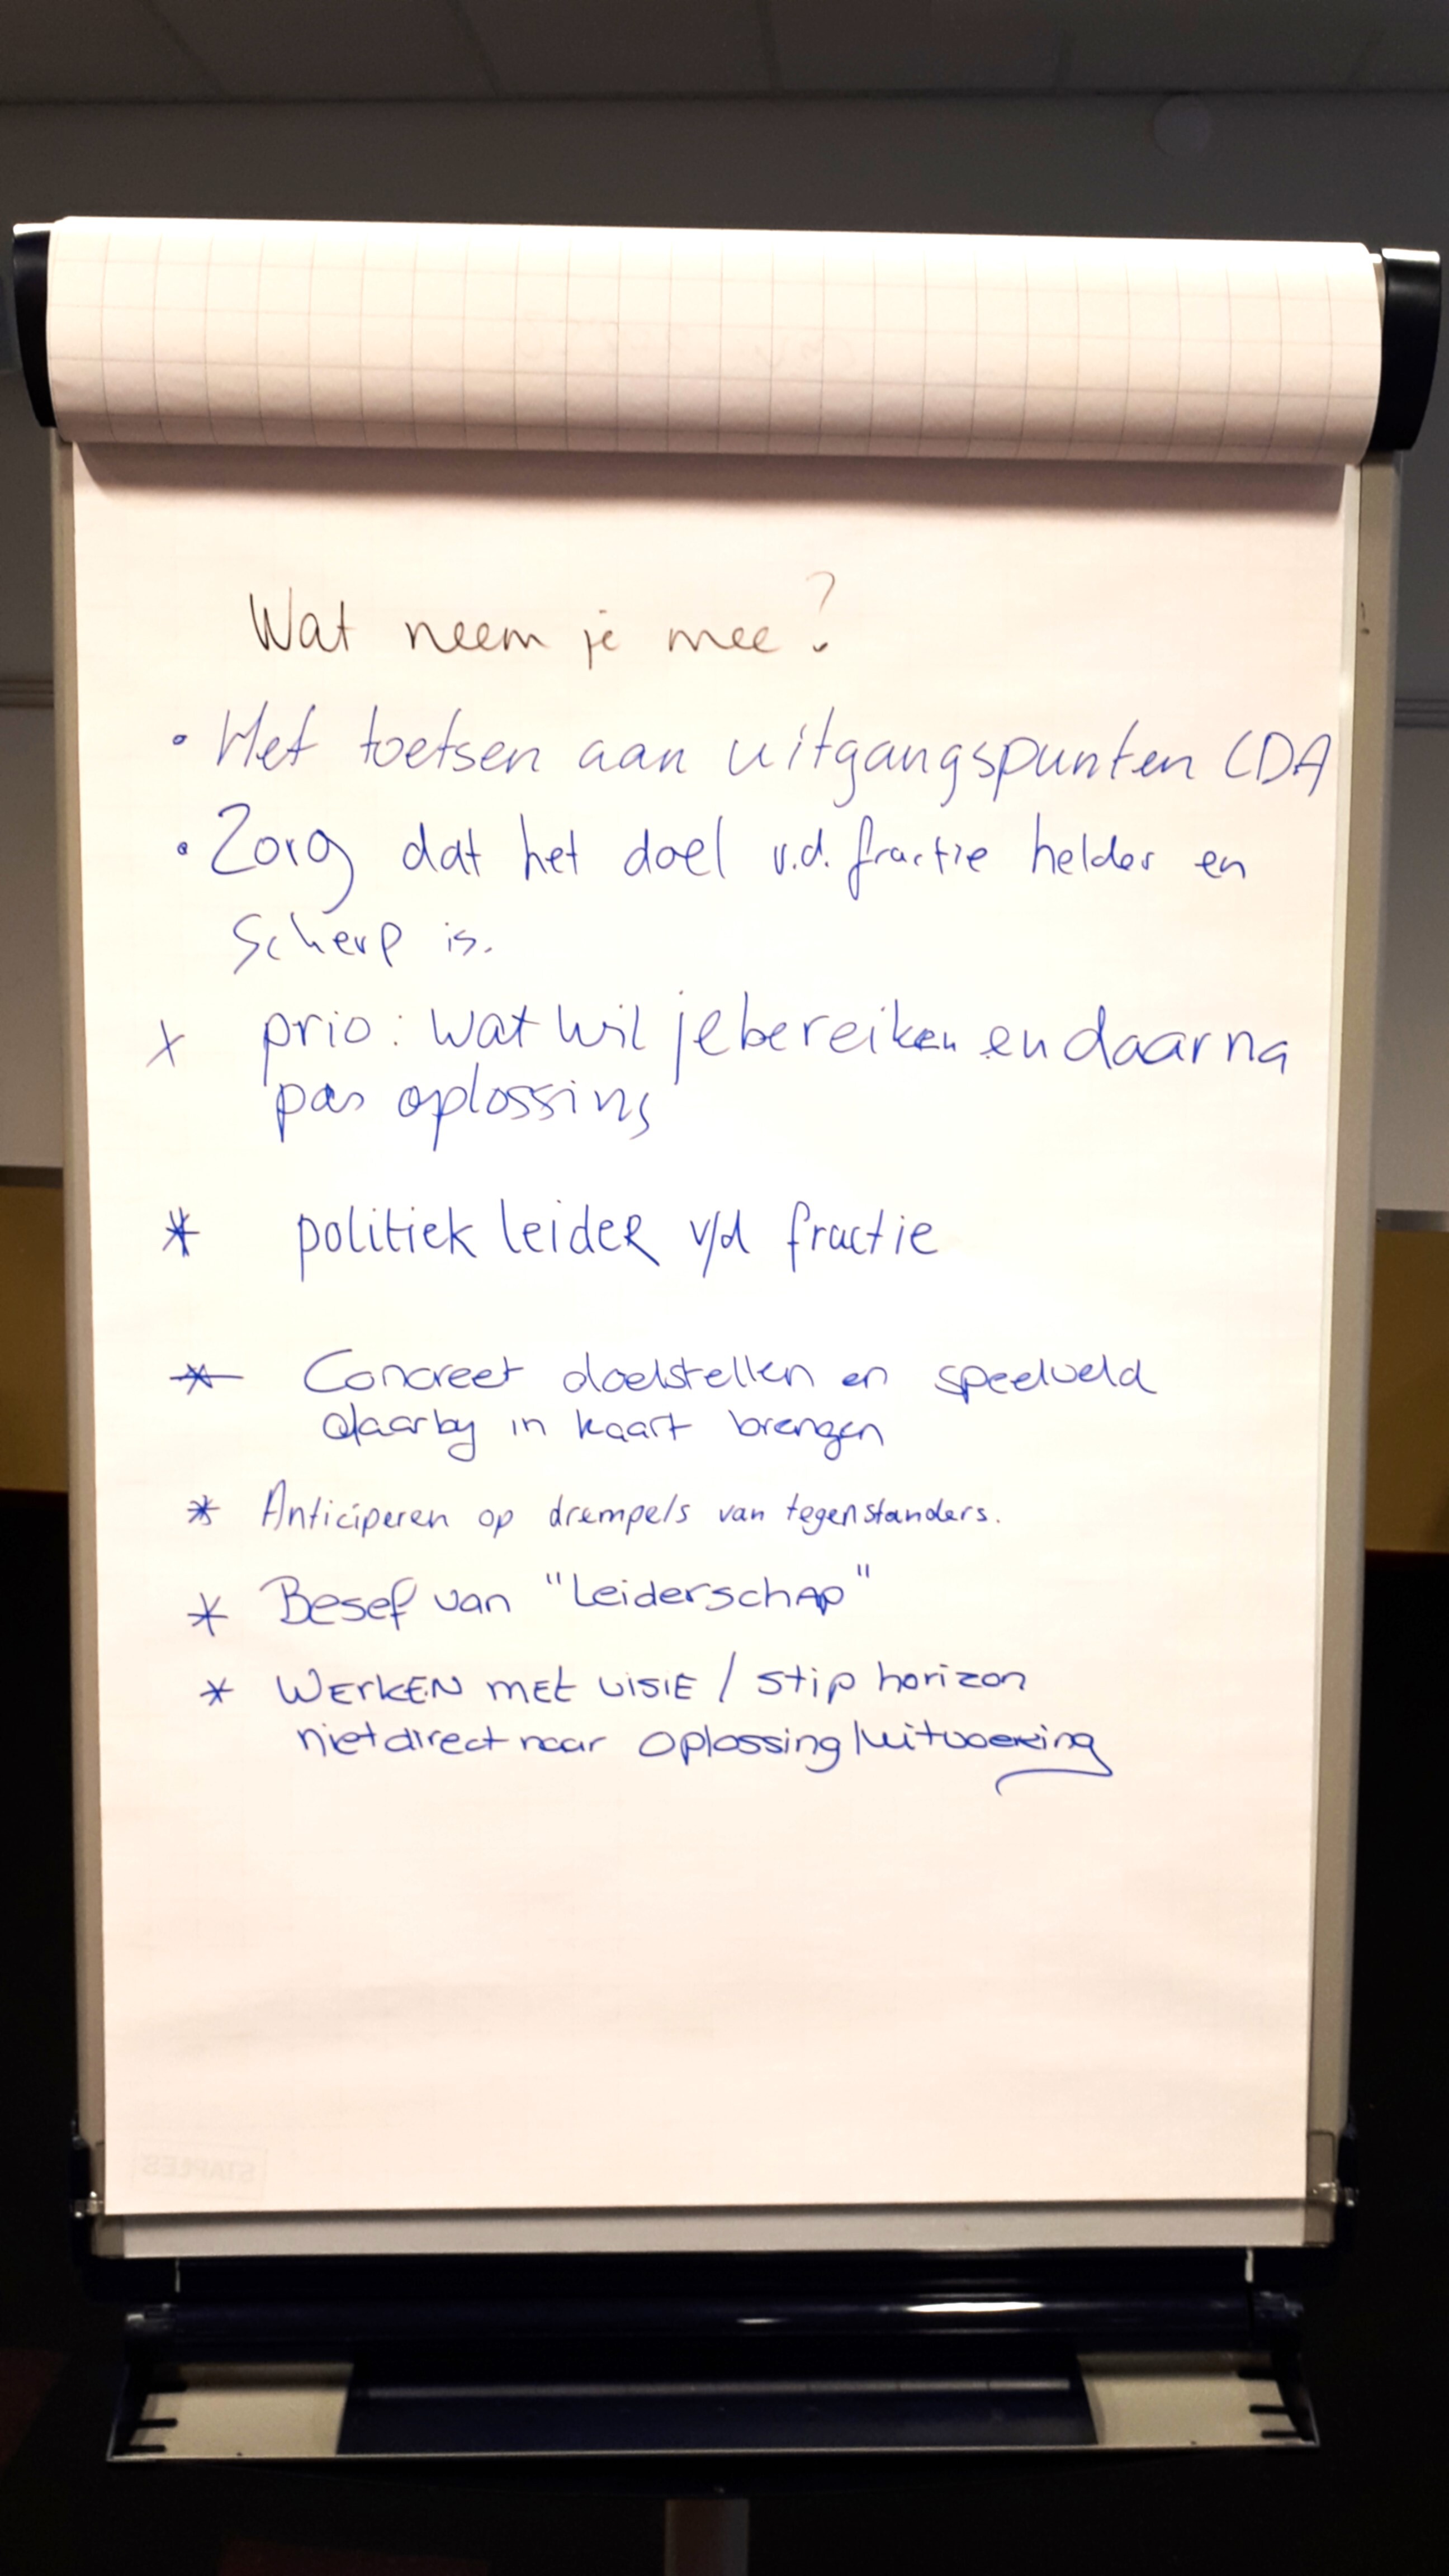 Wat neem je mee?
• Het toetsen aan uitgangspunten CDA
• Zorg dat het doel v.d. fractie helder en
scherp is.
x prio: wat wil je bereiken en daarna
pas oplossing
* politiek leider v/d fractie
* Concreet doelstellen en speelveld
daarby in kaart brengen
* Anticiperen op drempels van tegenstanders.
* Besef van "Leiderschap"
* Werken met visie / stip horizon
niet direct naar oplossing/uitvoering
STAPLES